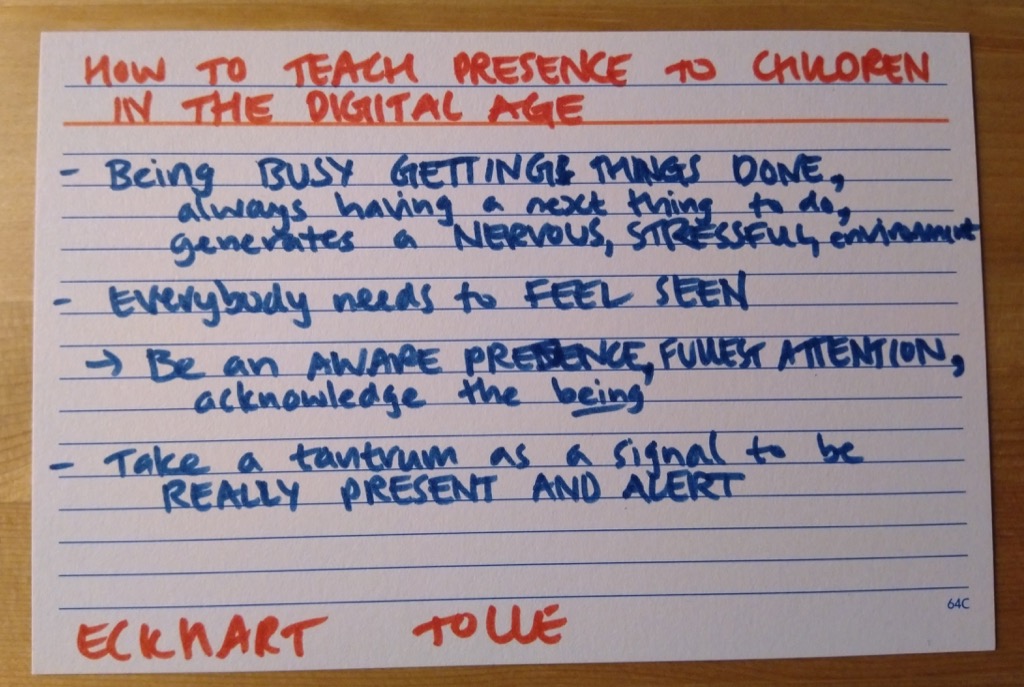 HOW TO TEACH PRESENCE TO CHILDREN
IN THE DIGITAL AGE
- Being BUSY GETTING THINGS DONE,
always having a next thing to do,
generates a NERVOUS, STRESSFUL, environment
- Everybody needs to FEEL SEEN
→ Be an AWARE PRESENCE, FULLEST ATTENTION,
acknowledge the being
- Take a tantrum as a signal to be
REALLY PRESENT AND ALERT
64C
ECKHART TOLLE